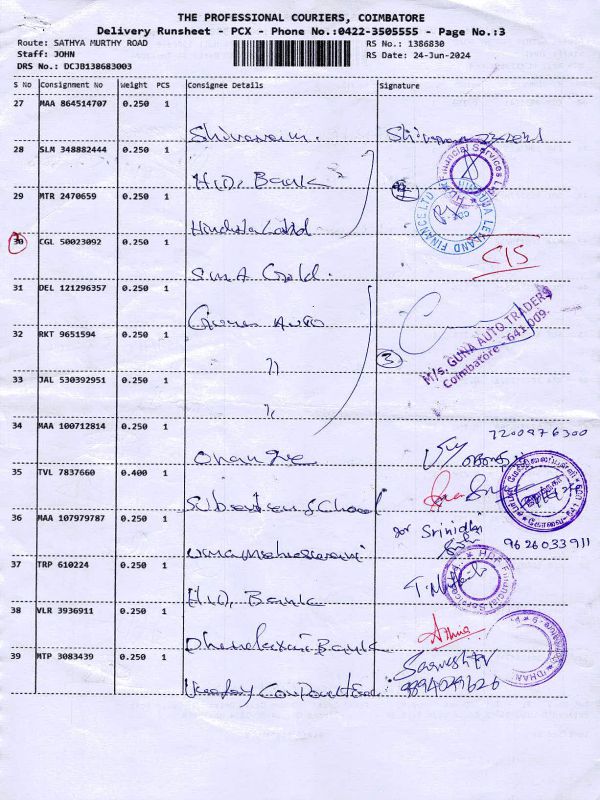 THE PROFESSIONAL COURIERS, COIMBATORE
Delivery Runsheet - PCX - Phone No.:0422-3505555 - Page No.:3
Route: SATHYA MURTHY ROAD
RS No.: 1386830
Staff: JOHN
RS Date: 24-Jun-2024
DRS No.: DCJB138683003
S No Consignment No Weight PCS Consignee Details Signature
27 MAA 864514707 0.250 1
28 SLM 348882444 0.250 1
H.D. Bank
Financial Services Ltd
29 MTR 2470659 0.250 1
2
LEYLAND FINANCE LTD
30 CGL 50023092 0.250 1
CIS
31 DEL 121296357 0.250 1
Guna Auto
32 RKT 9651594 0.250 1
"
3
M/s. GUNA AUTO TRADERS
Coimbatore - 641 009.
33 JAL 530392951 0.250 1
"
34 MAA 100712814 0.250 1
7200976300
35 TVL 7837660 0.400 1
36 MAA 107979787 0.250 1
for Srinidhi
9626033911
Uma Maheswari
37 TRP 610224 0.250 1
H.D. Bank
38 VLR 3936911 0.250 1
Dhanalaxmi Bank
39 MTP 3083439 0.250 1
Sarvesh
9894049626